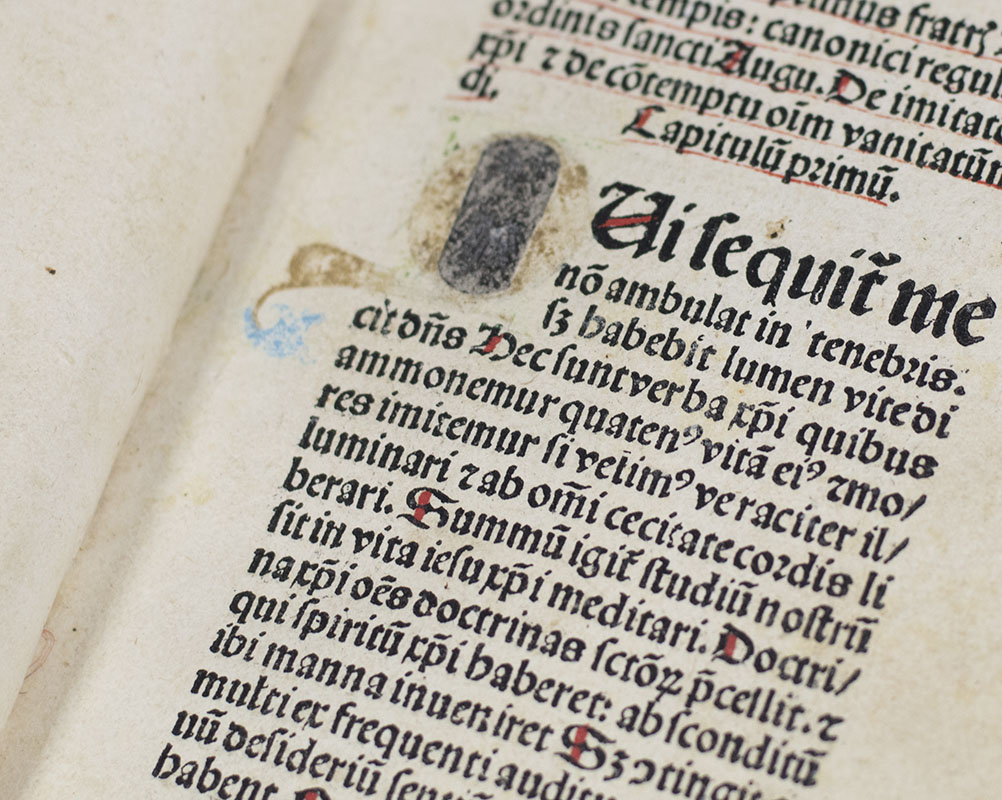 tempis: canonici regul
ordinis sancti Augu. De imitat
xp̄i ⁊ de cōtemptu oīm vanitatūm
di.
Capitulū primū.
Ui sequit᷑ me
nō ambulat in tenebris.
sꝫ habebit lumen vite di
cit dn̄s Hec sunt verba xp̄i quibus
ammonemur quatenꝰ vitā eiꝰ ⁊mo/
res imitemur si velimꝰ veraciter il/
luminari ⁊ ab om̄i cecitate cordis li
berari. Summū igit᷑ studiū nostrū
sit in vita iesu xp̄i meditari. Doctri/
na xp̄i oēs doctrinas sctōꝝ p̄cellit. ⁊
qui spiritū xp̄i haberet: absconditū
ibi manna inueniret Sꝫ ↄtingit
multi ex frequenti auditu
nū desideriū senti
habent